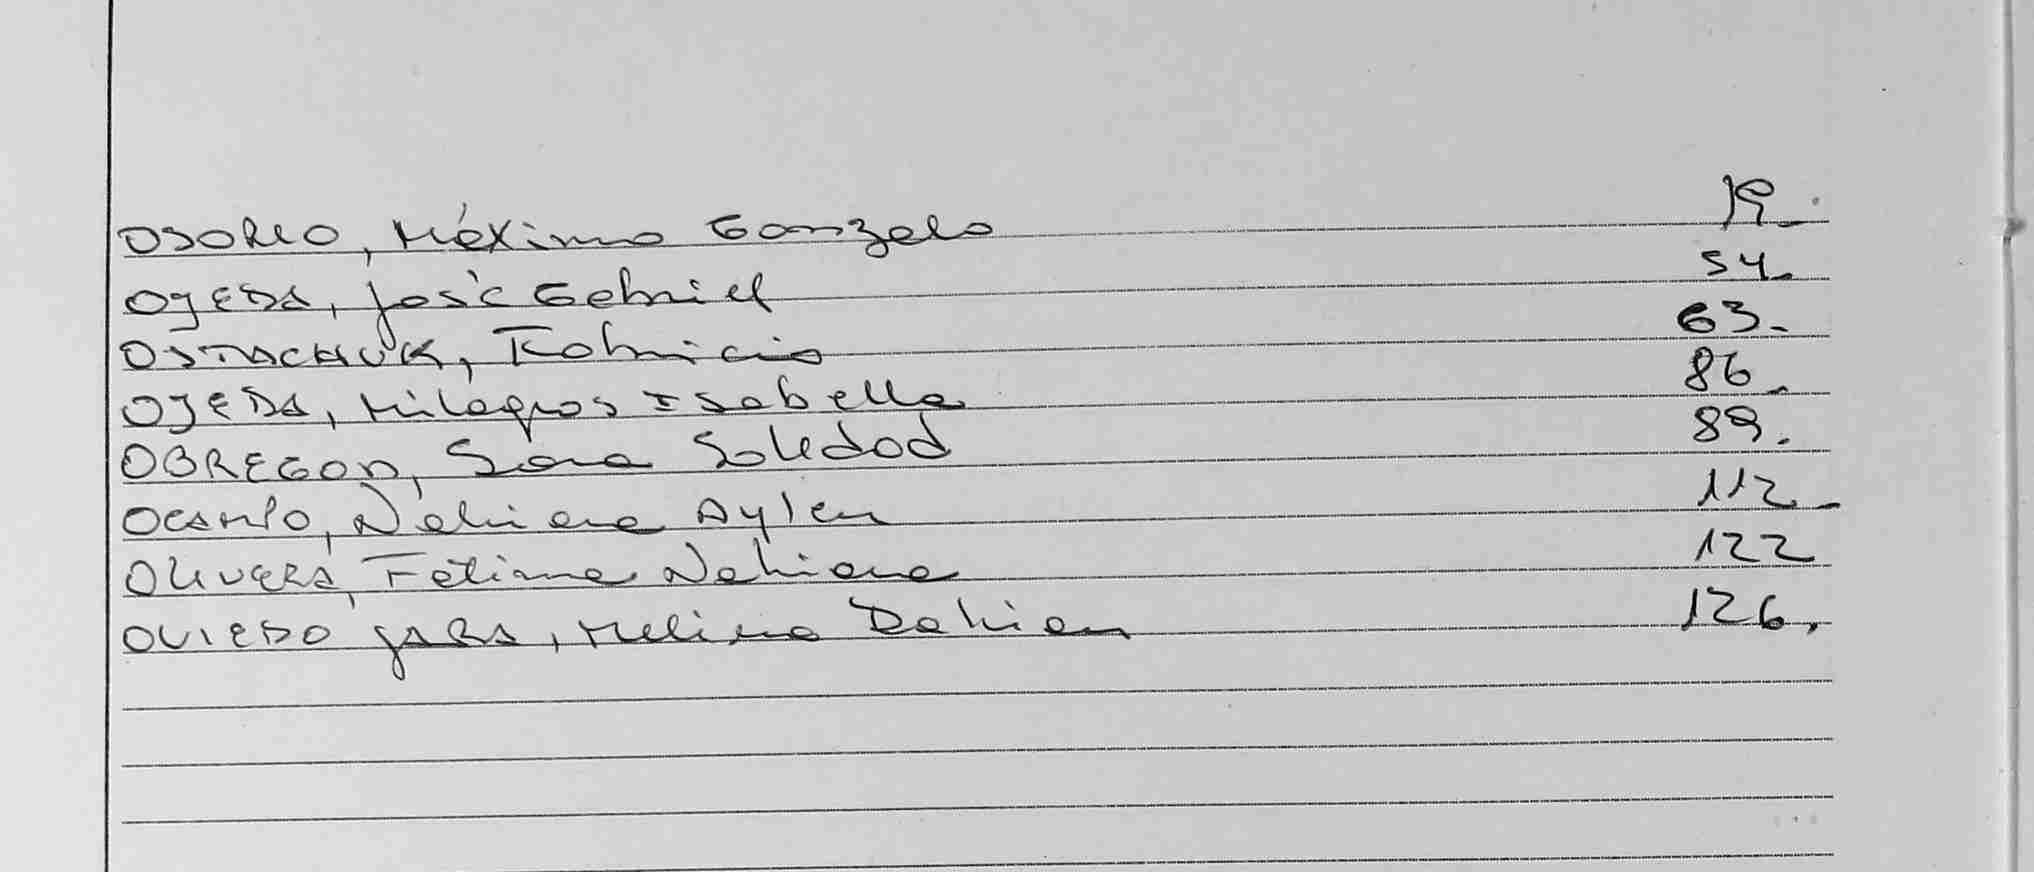 OSORIO, Máximo Gonzalo 19.
OJEDA, José Gabriel 54.
OSTACHUK, Fabricio 63.
OJEDA, Milagros Isabella 86.
OBREGON, Sara Soledad 89.
OCAMPO, Nahiara Aylen 112.
OLIVERA, Fátima Nahiara 122
OVIEDO JARA, Melina Dahian 126.